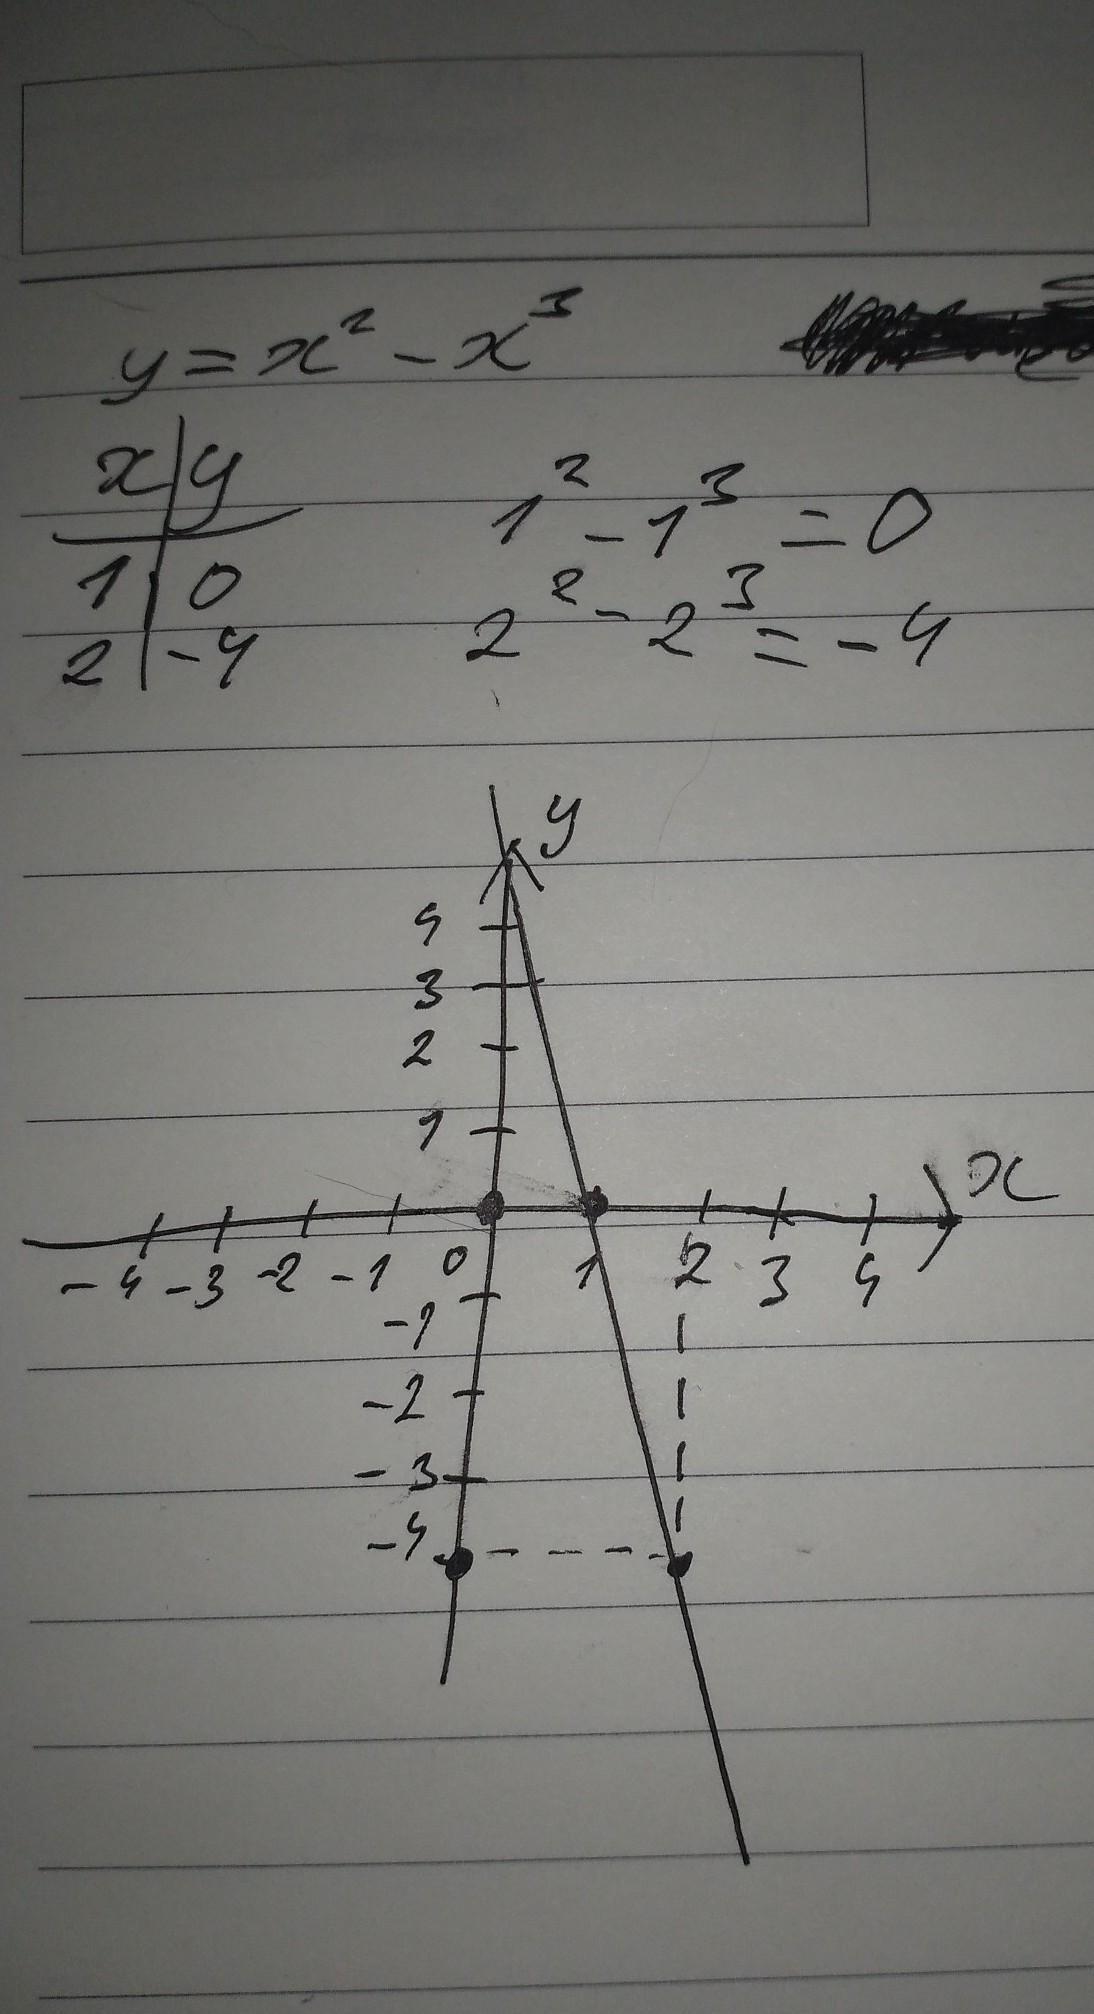 y = x² - x³
x y
1 0
2 -4
1² - 1³ = 0
2² - 2³ = -4
y
4
3
2
1
x
-4 -3 -2 -1 0 1 2 3 4
-1
-2
-3
-4